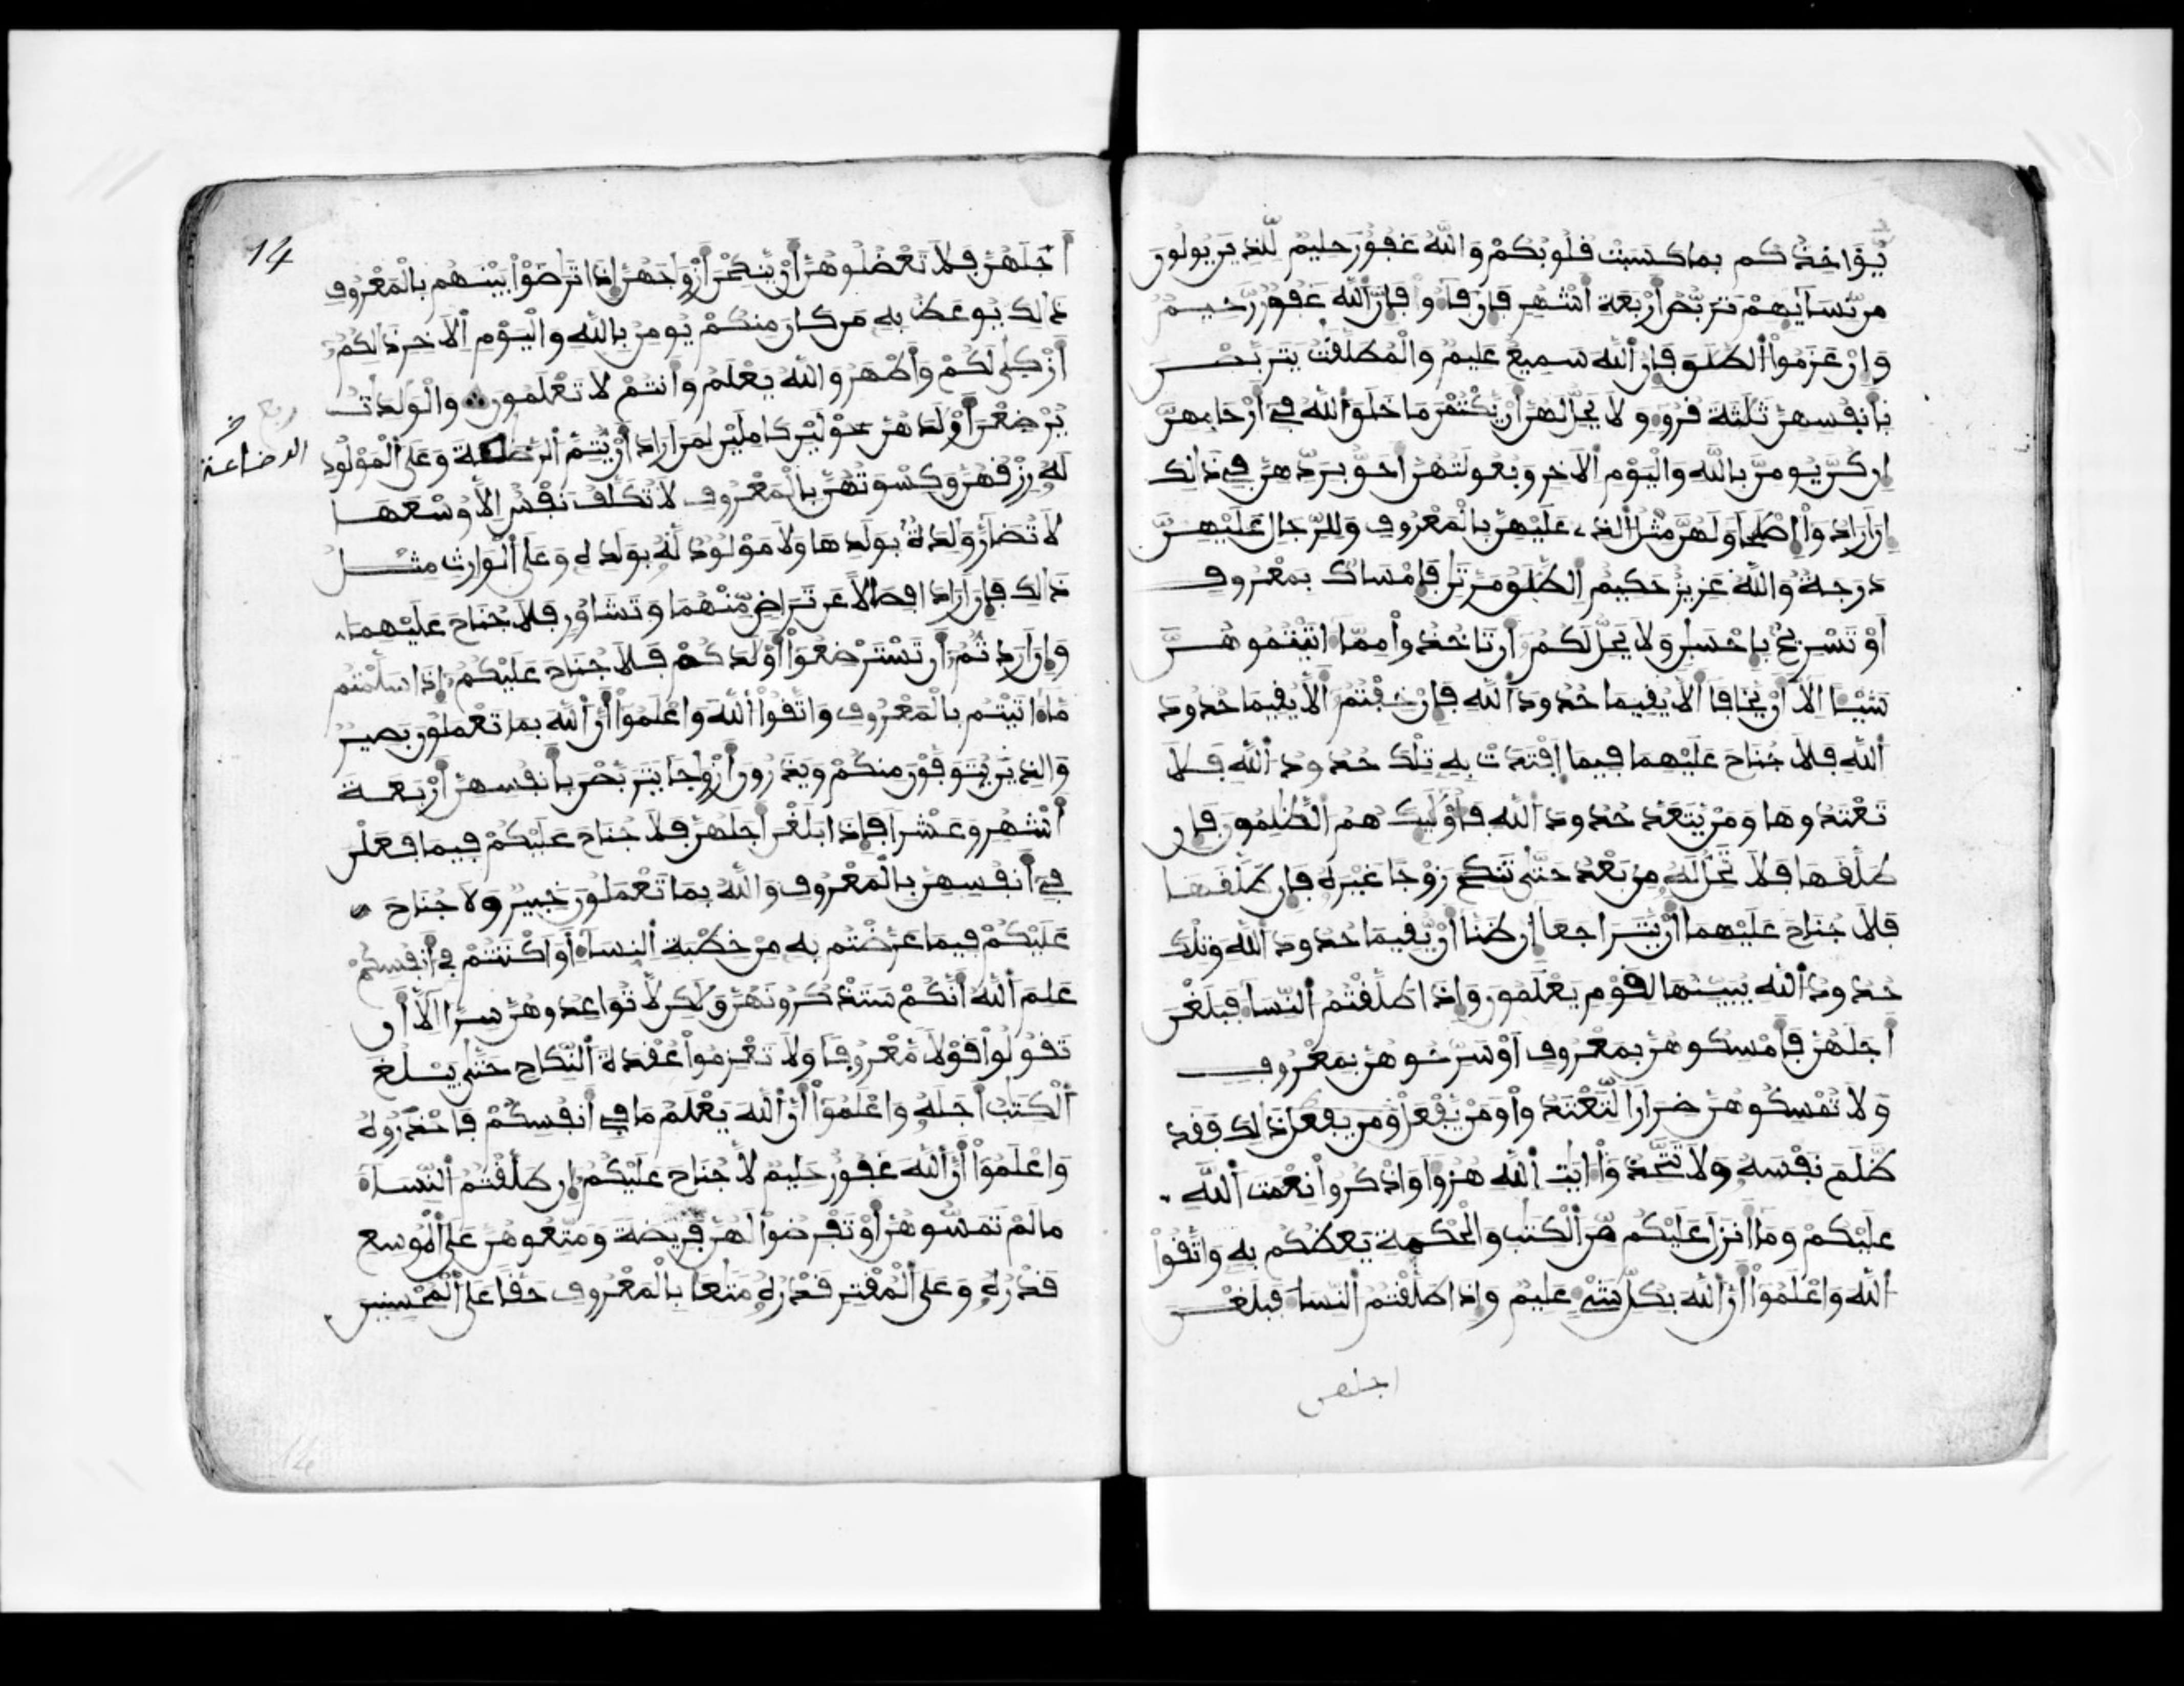 يُّوَاخِذُكُم بِمَا كَسَبَتْ قُلُوبُكُمْ وَاللَّهُ غَفُورٌ حَلِيمٌ لِّلَّذِينَ يُولُونَ
مِن نِّسَآئِهِمْ تَرَبُّصُ أَرْبَعَةِ أَشْهُرٍ فَإِن فَآءُو فَإِنَّ اللَّهَ غَفُورٌ رَّحِيمٌ
وَإِنْ عَزَمُوا الطَّلَٰقَ فَإِنَّ اللَّهَ سَمِيعٌ عَلِيمٌ وَالْمُطَلَّقَٰتُ يَتَرَبَّصْنَ
بِأَنفُسِهِنَّ ثَلَٰثَةَ قُرُوٓءٍ وَلَا يَحِلُّ لَهُنَّ أَنْ يَّكْتُمْنَ مَا خَلَقَ اللَّهُ فِي أَرْحَامِهِنَّ
إِن كُنَّ يُومِنَّ بِاللَّهِ وَالْيَوْمِ الْآخِرِ وَبُعُولَتُهُنَّ أَحَقُّ بِرَدِّهِنَّ فِي ذَٰلِكَ
إِنْ أَرَادُوا إِصْلَٰحًا وَلَهُنَّ مِثْلُ الَّذِي عَلَيْهِنَّ بِالْمَعْرُوفِ وَلِلرِّجَالِ عَلَيْهِنَّ
دَرَجَةٌ وَاللَّهُ عَزِيزٌ حَكِيمٌ الطَّلَٰقُ مَرَّتَٰنِ فَإِمْسَاكٌ بِمَعْرُوفٍ
أَوْ تَسْرِيحٌ بِإِحْسَٰنٍ وَلَا يَحِلُّ لَكُمْ أَن تَاخُذُوا مِمَّا اتَيْتُمُوهُنَّ
شَيْئًا إِلَّا أَنْ يَّخَافَا أَلَّا يُقِيمَا حُدُودَ اللَّهِ فَإِنْ خِفْتُمْ أَلَّا يُقِيمَا حُدُودَ
اللَّهِ فَلَا جُنَاحَ عَلَيْهِمَا فِيمَا افْتَدَتْ بِهِ تِلْكَ حُدُودُ اللَّهِ فَلَا
تَعْتَدُوهَا وَمَنْ يَّتَعَدَّ حُدُودَ اللَّهِ فَأُوْلَٰئِكَ هُمُ الظَّٰلِمُونَ فَإِن
طَلَّقَهَا فَلَا تَحِلُّ لَهُ مِن بَعْدُ حَتَّىٰ تَنكِحَ زَوْجًا غَيْرَهُ فَإِن طَلَّقَهَا
فَلَا جُنَاحَ عَلَيْهِمَا أَنْ يَّتَرَاجَعَا إِن ظَنَّا أَنْ يُّقِيمَا حُدُودَ اللَّهِ وَتِلْكَ
حُدُودُ اللَّهِ يُبَيِّنُهَا لِقَوْمٍ يَعْلَمُونَ وَإِذَا طَلَّقْتُمُ النِّسَآءَ فَبَلَغْنَ
أَجَلَهُنَّ فَأَمْسِكُوهُنَّ بِمَعْرُوفٍ أَوْ سَرِّحُوهُنَّ بِمَعْرُوفٍ
وَلَا تُمْسِكُوهُنَّ ضِرَارًا لِّتَعْتَدُوا وَمَنْ يَّفْعَلْ وَمَنْ يَّفْعَلْ ذَٰلِكَ فَقَد
ظَّلَمَ نَفْسَهُ وَلَا تَتَّخِذُوا ايَٰتِ اللَّهِ هُزُؤًا وَاذْكُرُوا نِعْمَتَ اللَّهِ
عَلَيْكُمْ وَمَا أَنزَلَ عَلَيْكُم مِّنَ الْكِتَٰبِ وَالْحِكْمَةِ يَعِظُكُم بِهِ وَاتَّقُوا
اللَّهَ وَاعْلَمُوا أَنَّ اللَّهَ بِكُلِّ شَيْءٍ عَلِيمٌ وَإِذَا طَلَّقْتُمُ النِّسَآءَ فَبَلَغْنَ
اجلهن
14
أَجَلَهُنَّ فَلَا تَعْضُلُوهُنَّ أَنْ يَّنكِحْنَ أَزْوَٰجَهُنَّ إِذَا تَرَٰضَوْا بَيْنَهُم بِالْمَعْرُوفِ
ذَٰلِكَ يُوعَظُ بِهِ مَن كَانَ مِنكُمْ يُومِنُ بِاللَّهِ وَالْيَوْمِ الْآخِرِ ذَٰلِكُمْ
أَزْكَىٰ لَكُمْ وَأَطْهَرُ وَاللَّهُ يَعْلَمُ وَأَنتُمْ لَا تَعْلَمُونَ وَالْوَٰلِدَٰتُ
يُرْضِعْنَ أَوْلَٰدَهُنَّ حَوْلَيْنِ كَامِلَيْنِ لِمَنْ أَرَادَ أَنْ يُّتِمَّ الرَّضَٰعَةَ وَعَلَى الْمَوْلُودِ
ربع
الرضاعة
لَهُ رِزْقُهُنَّ وَكِسْوَتُهُنَّ بِالْمَعْرُوفِ لَا تُكَلَّفُ نَفْسٌ إِلَّا وُسْعَهَا
لَا تُضَآرَّ وَٰلِدَةٌ بِوَلَدِهَا وَلَا مَوْلُودٌ لَّهُ بِوَلَدِهِ وَعَلَى الْوَارِثِ مِثْلُ
ذَٰلِكَ فَإِنْ أَرَادَا فِصَالًا عَن تَرَاضٍ مِّنْهُمَا وَتَشَاوُرٍ فَلَا جُنَاحَ عَلَيْهِمَا
وَإِنْ أَرَدتُّمْ أَن تَسْتَرْضِعُوا أَوْلَٰدَكُمْ فَلَا جُنَاحَ عَلَيْكُمْ إِذَا سَلَّمْتُم
مَّا اتَيْتُم بِالْمَعْرُوفِ وَاتَّقُوا اللَّهَ وَاعْلَمُوا أَنَّ اللَّهَ بِمَا تَعْمَلُونَ بَصِيرٌ
وَالَّذِينَ يُتَوَفَّوْنَ مِنكُمْ وَيَذَرُونَ أَزْوَٰجًا يَتَرَبَّصْنَ بِأَنفُسِهِنَّ أَرْبَعَةَ
أَشْهُرٍ وَعَشْرًا فَإِذَا بَلَغْنَ أَجَلَهُنَّ فَلَا جُنَاحَ عَلَيْكُمْ فِيمَا فَعَلْنَ
فِي أَنفُسِهِنَّ بِالْمَعْرُوفِ وَاللَّهُ بِمَا تَعْمَلُونَ خَبِيرٌ وَلَا جُنَاحَ
عَلَيْكُمْ فِيمَا عَرَّضْتُم بِهِ مِنْ خِطْبَةِ النِّسَآءِ أَوْ أَكْنَنتُمْ فِي أَنفُسِكُمْ
عَلِمَ اللَّهُ أَنَّكُمْ سَتَذْكُرُونَهُنَّ وَلَٰكِن لَّا تُوَاعِدُوهُنَّ سِرًّا إِلَّا أَن
تَقُولُوا قَوْلًا مَّعْرُوفًا وَلَا تَعْزِمُوا عُقْدَةَ النِّكَاحِ حَتَّىٰ يَبْلُغَ
الْكِتَٰبُ أَجَلَهُ وَاعْلَمُوا أَنَّ اللَّهَ يَعْلَمُ مَا فِي أَنفُسِكُمْ فَاحْذَرُوهُ
وَاعْلَمُوا أَنَّ اللَّهَ غَفُورٌ حَلِيمٌ لَّا جُنَاحَ عَلَيْكُمْ إِن طَلَّقْتُمُ النِّسَآءَ
مَا لَمْ تَمَسُّوهُنَّ أَوْ تَفْرِضُوا لَهُنَّ فَرِيضَةً وَمَتِّعُوهُنَّ عَلَى الْمُوسِعِ
قَدْرُهُ وَعَلَى الْمُقْتِرِ قَدْرُهُ مَتَٰعًا بِالْمَعْرُوفِ حَقًّا عَلَى الْمُحْسِنِينَ
14